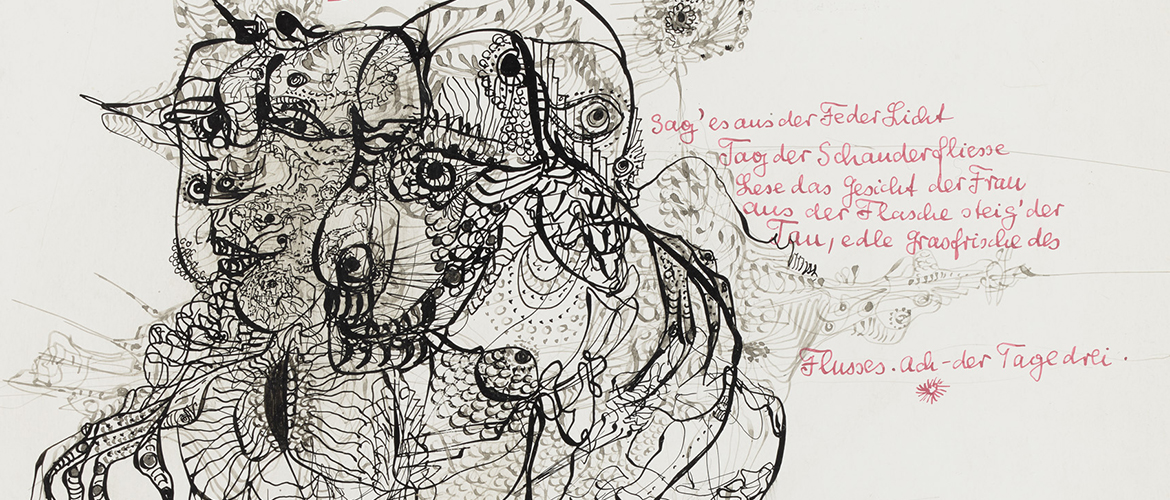 Sag' es aus der Feder Licht
Tag der Schauderfliesse
Lese das Gesicht der Frau
aus der Flasche steig' der
Tau, edle grasfrische des
Flusses. Ach - der Tage drei .